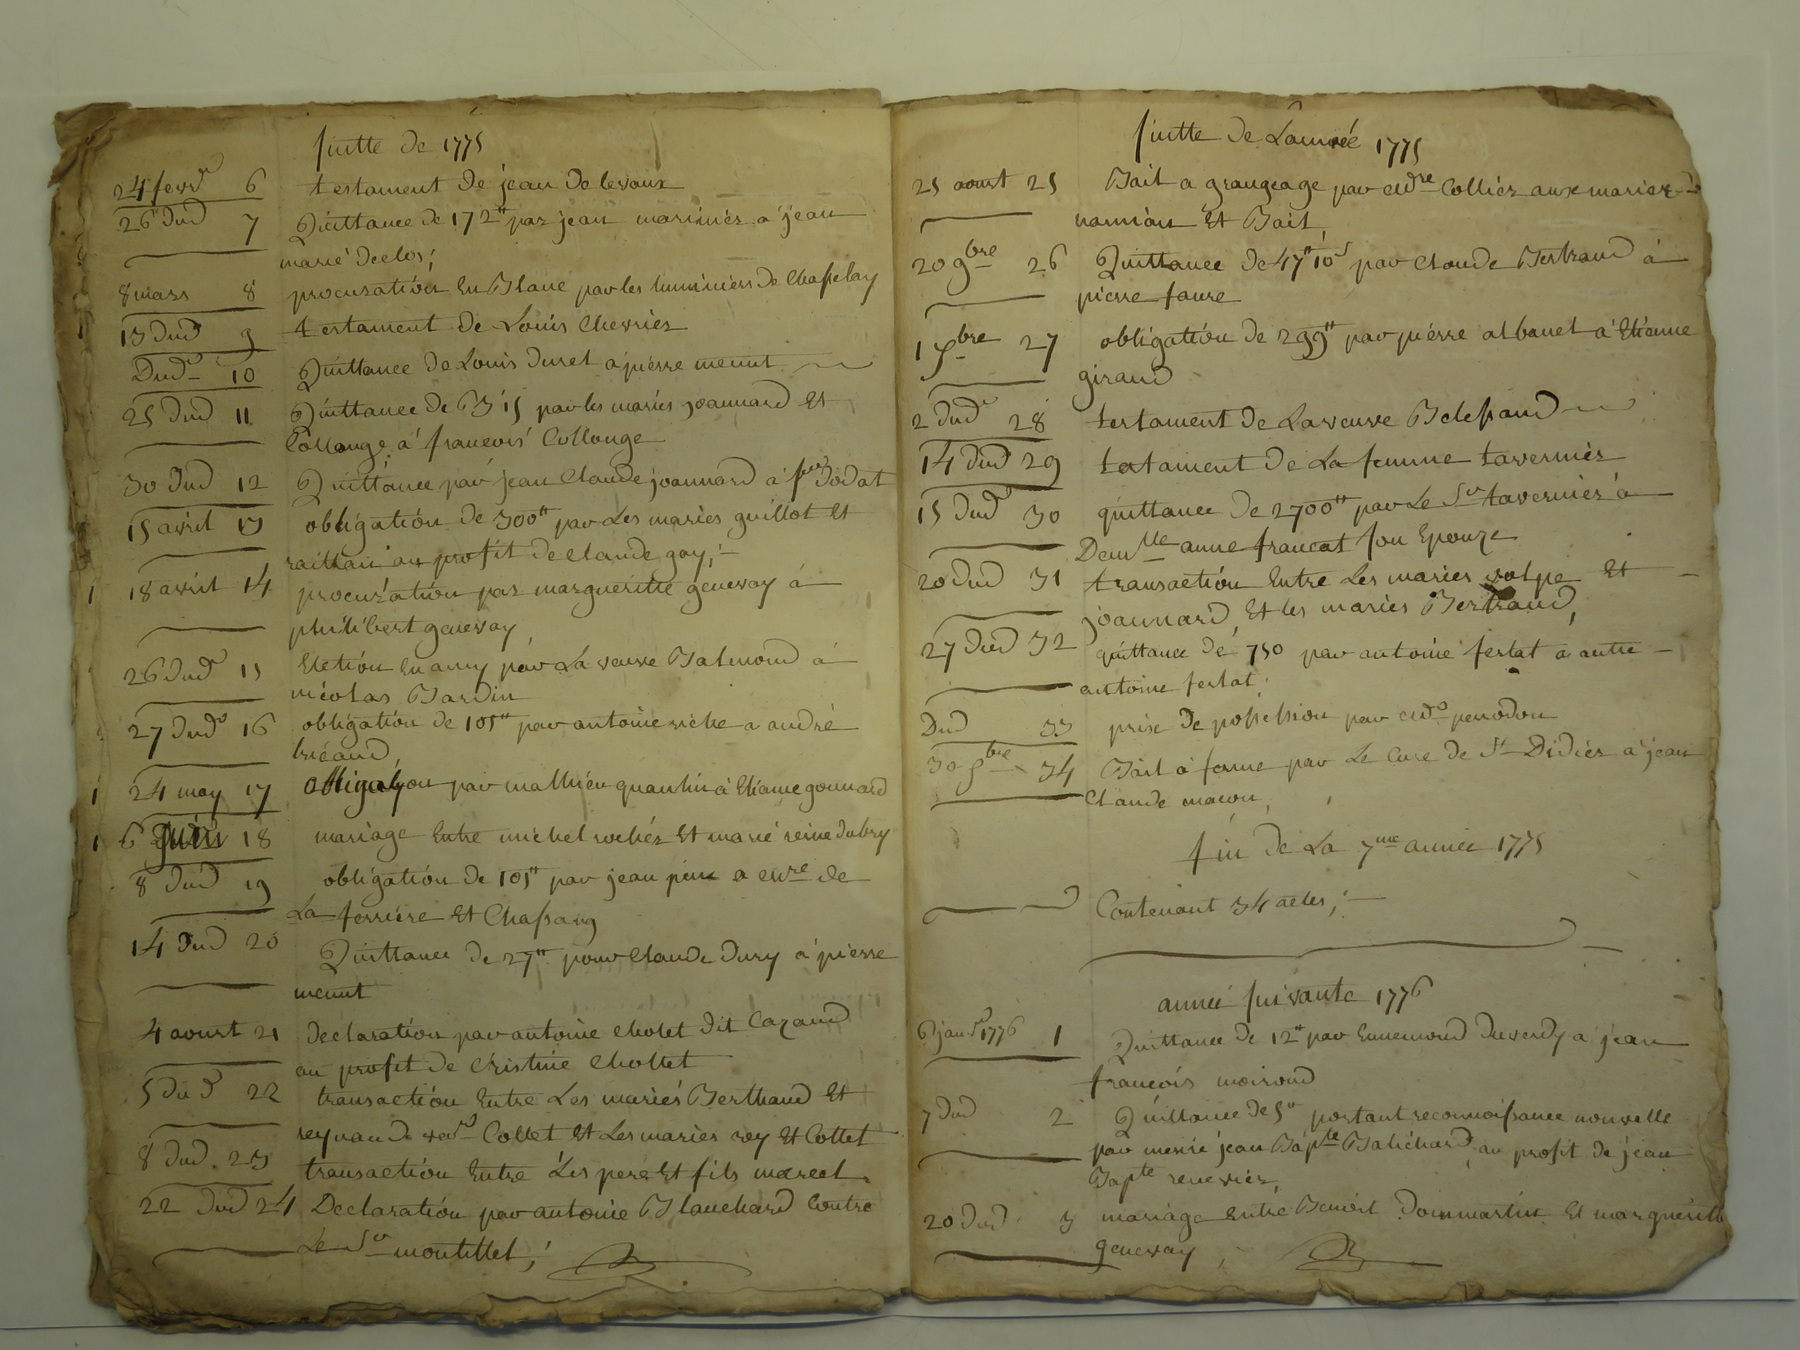 suitte de 1775
24 fevr 6 testament de jean delevaux
26 dud 7 Quittance de 172# par jean mariniér a jean
marié declos;
8 mars 8 procuration En Blanc par les luminiérs de Chasselay
13 dud 9 testament de Louis Chevriér
dud 10 Quittance de Louis duret a piérre menut
25 dud 11 Quittance de par les mariés joannard Et
Collonge a francois Collonge
30 dud 12 Quittance par jean Claude joannard á dodat
15 avril 13 obligation de 300# par Les mariés guillot Et
au profit de claude gay;
1 18 avril 14 procuration par margueritte genevay á
philibert genevay
26 dud 15 Eletion En amy par La veuve Balmond á
nicolas Bardin
27 dud 16 obligation de 105# par antoine riche a andré
1 24 may 17 obligation par mathieu quantin á Etiénne gonnard
1 6 juin 18 mariage Entre michel rochér Et marié reine dubry
8 dud 19 obligation de 105# par jean a de
La ferriére Et Chassaing
14 dud 20 Quittance de 27# pour claude dury á piérre
menut
4 aoust 21 declaration par antoine cholet dit Cazaud
au profit de Cristine Chollet
5 dud 22 transaction Entre Les mariés Berthaud Et
Collet Et Les mariés rey Et Collet
8 dud 23 transaction Entre Les pere Et fils marcel
22 dud 24 Declaration par antoine Blanchard Contre
Le Sr montellet;
suitte de Lannéé 1775
25 aoust 25 Bail a grangeage par Colliér aux mariez
Et Bail,
20 9bre 26 Quittance de 47# 10s par Claude Bertrand á
pierre faure
1 xbre 27 obligation de 299# par piérre albanel a Etiénne
giraud
2 dud 28 testament de La veuve
14 dud 29 testament de La femme taverniér
15 dud 30 quittance de 2700# par Le Sr taverniér á
Demlle anne son Epouze
20 dud 31 transaction Entre Les mariés volpe Et
joannard, Et les mariés Bertrand,
27 dud 32 quittance de 750 par antoine ferlat á autre
antoine ferlat;
Dud 33 prise de possession par
30 34 Bail á ferme par Le Cure de St Didiér á jean
Claude macon,
fin de La 7me année 1775
Contenant 34 actes;
anneé suivante 1776
6 janr 1776 1 Quittance de 12# par Ennemond duverdy a jean
francois moiroud
7 dud 2 Quittance de 5# portant reconnoissance nouvelle
par jean Bapte Balichard, au profit de jean
Bapte reneviér,
20 dud 3 mariage Entre Benoist Dommartin Et margueritte
genevay;